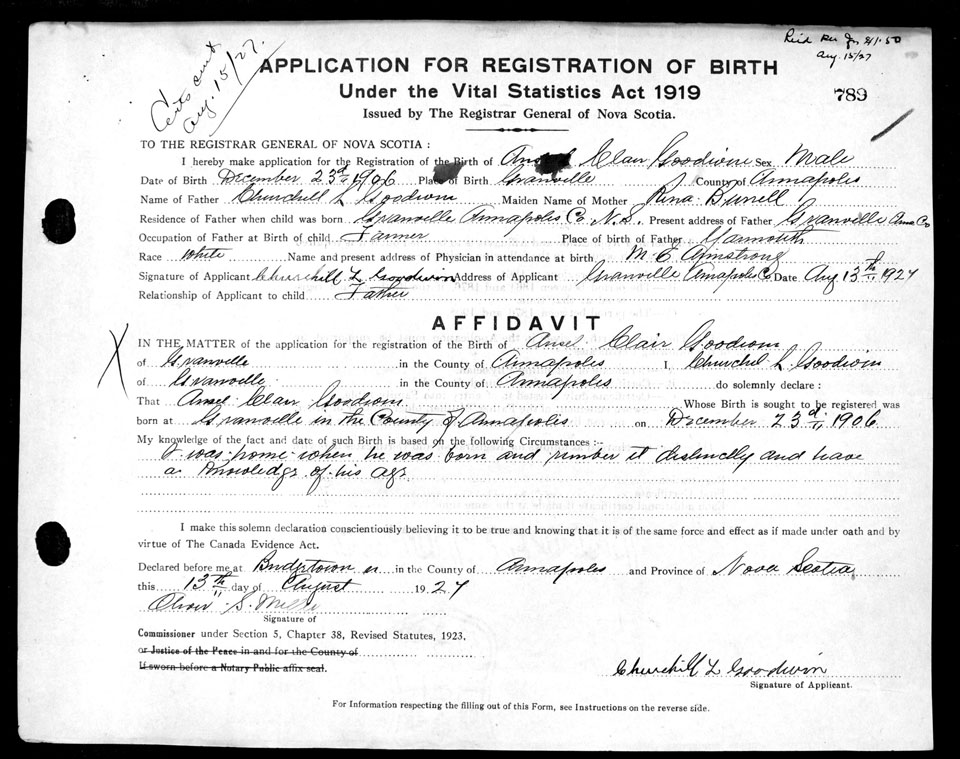 Aug. 15/27
Certs sent
Aug. 15/27.
APPLICATION FOR REGISTRATION OF BIRTH
Under the Vital Statistics Act 1919
789
Issued by The Registrar General of Nova Scotia.
TO THE REGISTRAR GENERAL OF NOVA SCOTIA :
I hereby make application for the Registration of the Birth of Ansel Clair Goodwin Sex Male
Date of Birth December 23rd 1906 Place of Birth Granville County of Annapolis
Name of Father Churchill L Goodwin Maiden Name of Mother Rina
Residence of Father when child was born Granville Annapolis Co N.S. Present address of Father Granville Anna Co
Occupation of Father at Birth of child Farmer Place of birth of Father Yarmouth
Race White Name and present address of Physician in attendance at birth M. E Armstrong
Signature of Applicant Churchill L Goodwin Address of Applicant Granville Annapolis Co Date Aug 13th 1927
Relationship of Applicant to child Father
AFFIDAVIT
IN THE MATTER of the application for the registration of the Birth of Ansel Clair Goodwin
of Granville in the County of Annapolis I, Churchil L. Goodwin
of Granville in the County of Annapolis do solemnly declare :
That Ansel Clair Goodwin Whose Birth is sought to be registered was
born at Granville in the County of Annapolis on December 23rd 1906
My knowledge of the fact and date of such Birth is based on the following Circumstances :-
I was home when he was born and rember it distinctly and have
a knowledge of his age
I make this solemn declaration conscientiously believing it to be true and knowing that it is of the same force and effect as if made under oath and by
virtue of The Canada Evidence Act.
Declared before me at Bridgetown in the County of Annapolis and Province of Nova Scotia
this 13th day of August 1927
S. Miller
Signature of
Commissioner under Section 5, Chapter 38, Revised Statutes, 1923.
or Justice of the Peace in and for the County of
If sworn before a Notary Public affix seal.
Churchill L Goodwin
Signature of Applicant.
For Information respecting the filling out of this Form, see Instructions on the reverse side.